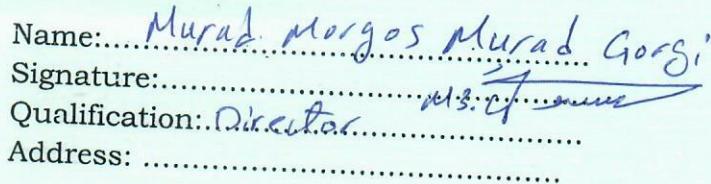 Name:.... Murad Morgos Murad Gorgi
Signature:..........................................
Qualification:.Director..........................
Address: ..........................................